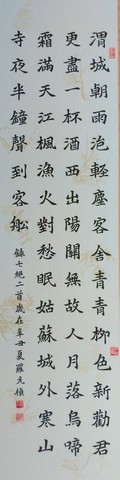 渭城朝雨浥輕塵客舍青青柳色新勸君
更盡一杯酒西出陽關無故人月落烏啼
霜滿天江楓漁火對愁眠姑蘇城外寒山
寺夜半鐘聲到客船
錄七絕二首歲在辛丑夏羅元